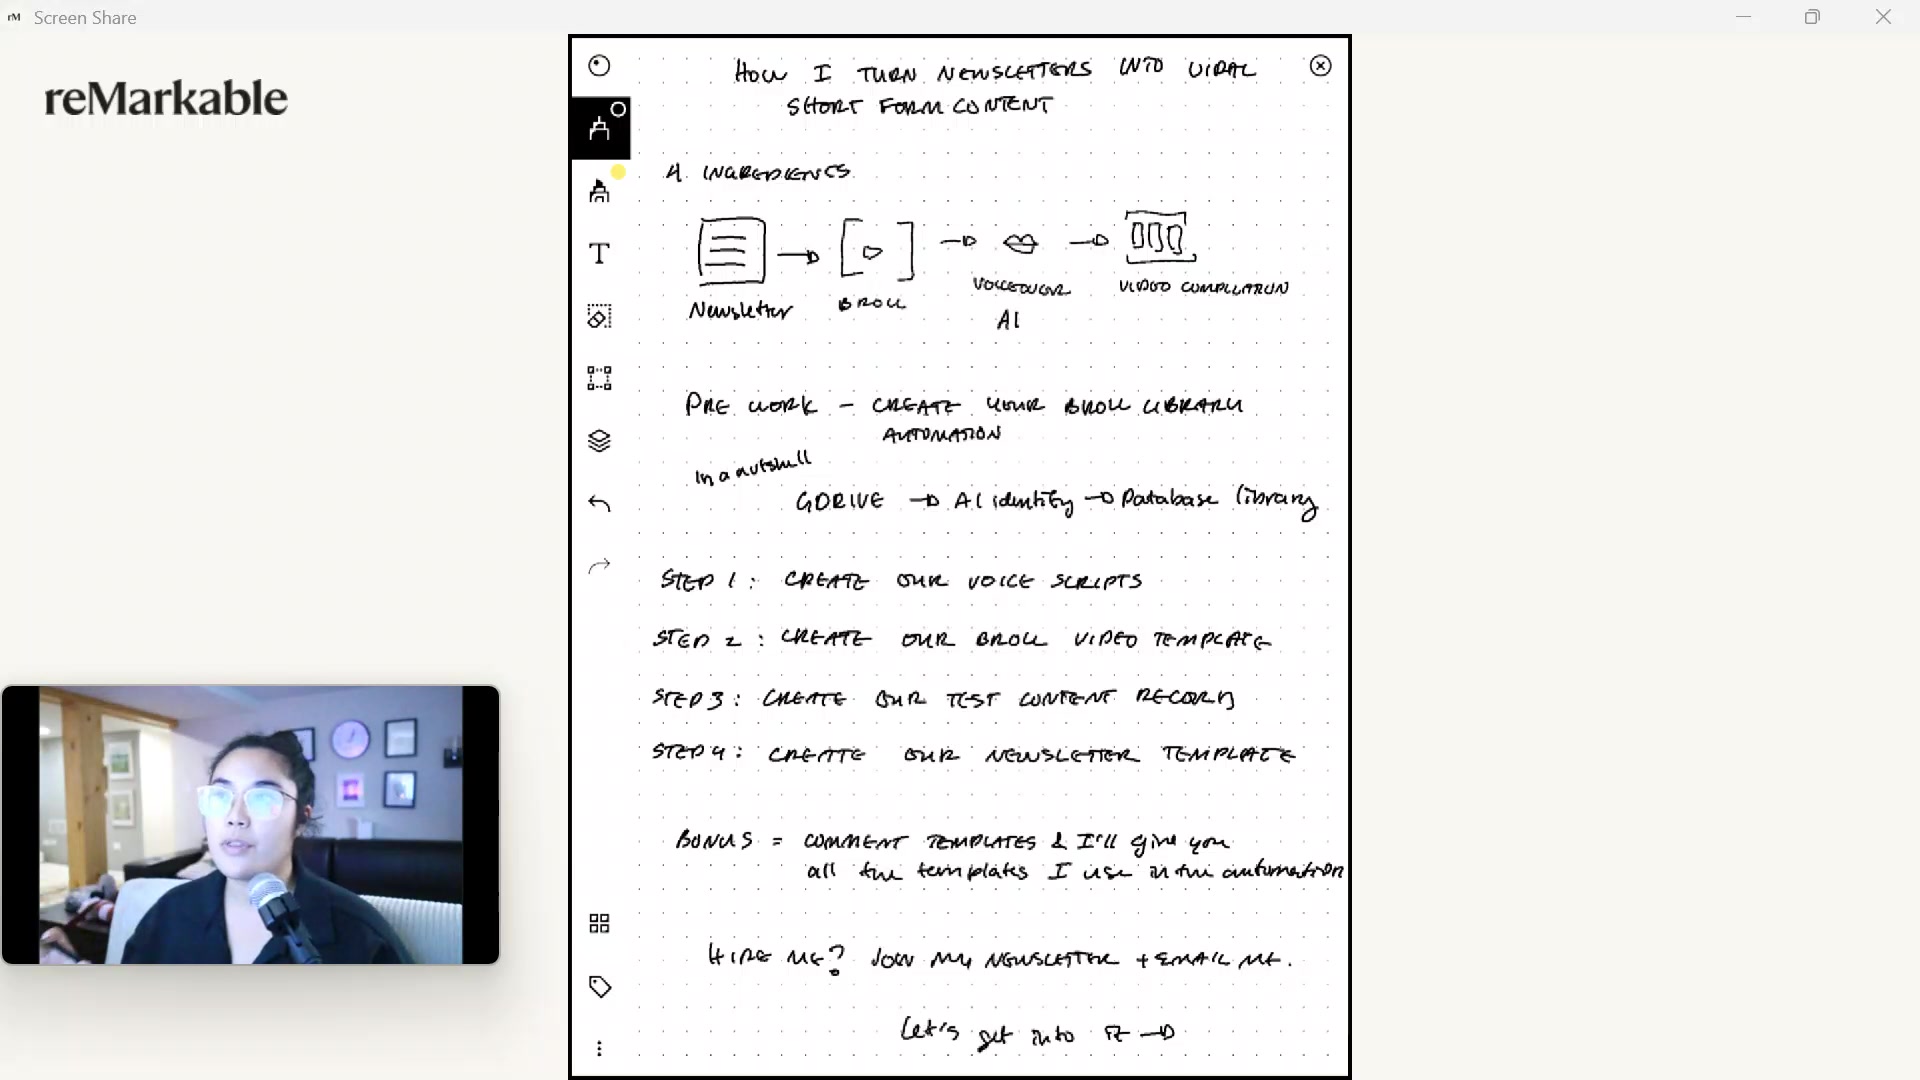 rM Screen Share
reMarkable
HOW I TURN NEWSLETTERS INTO VIRAL
SHORT FORM CONTENT
4 INGREDIENTS
Newsletter
BROLL
VOICEOVER
AI
VIDEO COMPILATION
PRE WORK - CREATE YOUR BROLL LIBRARY
AUTOMATION
In a nutshell
GDRIVE → AI identify → Database library
STEP 1: CREATE OUR VOICE SCRIPTS
STEP 2: CREATE OUR BROLL VIDEO TEMPLATE
STEP 3: CREATE OUR TEST CONTENT RECORD
STEP 4: CREATE OUR NEWSLETTER TEMPLATE
BONUS = COMMENT TEMPLATES & I'll give you
all the templates I use in the automation
HIRE ME? JOIN MY NEWSLETTER + EMAIL ME.
Let's get into it →